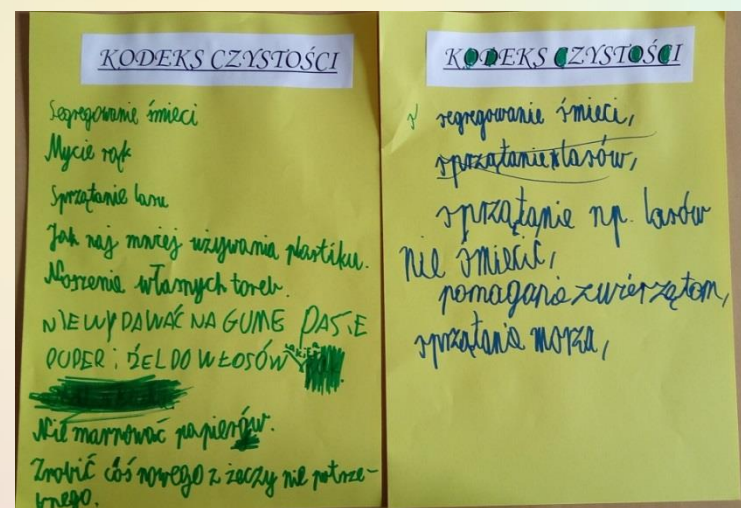 KODEKS CZYSTOŚCI
Segregowanie śmieci
Mycie rąk
Sprzątanie lasu
Jak naj mniej używania plastiku.
Noszenie własnych toreb.
NIEWYDAWAĆ NA GUME PASIE
PUDER i ŻEL DO WŁOSÓW
Nie marnować papierów.
Zrobić coś nowego z żeczy nie potrze-
bnego.
KODEKS CZYSTOŚCI
segregowanie śmieci,
sprzątanie lasów,
sprzątanie np. lasów
nie śmiecić,
pomaganie zwierzętom,
sprzątanie morza,